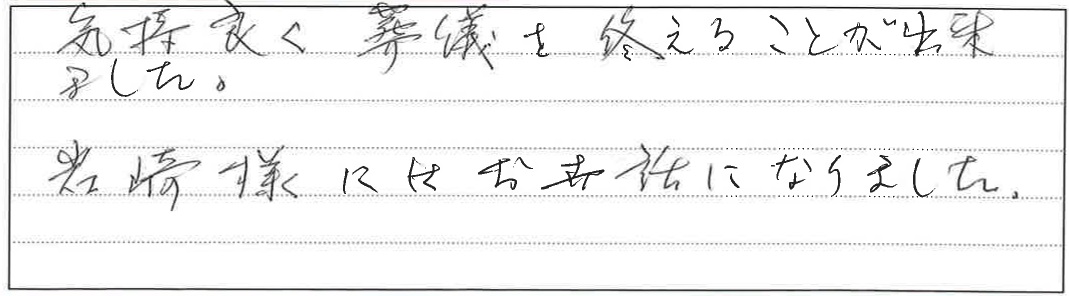 気持良く葬儀を終えることが出来
ました。
岩崎様にはお世話になりました。